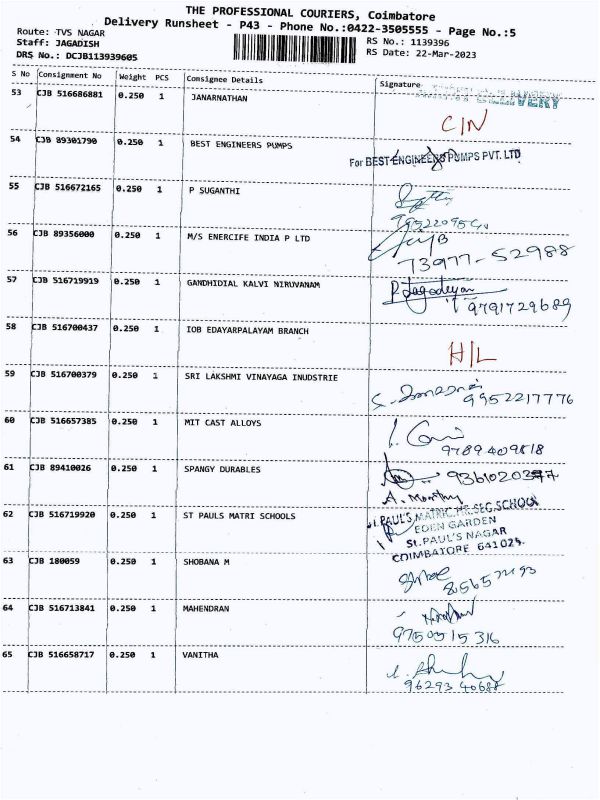 THE PROFESSIONAL COURIERS, Coimbatore
Delivery Runsheet - P43 - Phone No.:0422-3505555 - Page No.:5
Route: TVS NAGAR
Staff: JAGADISH
DRS No.: DCJB113939605
RS No.: 1139396
RS Date: 22-Mar-2023
S No Consignment No Weight PCS Consignee Details Signature
53 CJB 516686881 0.250 1 JANARNATHAN DELIVERY
C/N
54 CJB 89301790 0.250 1 BEST ENGINEERS PUMPS
For BEST ENGINEERS PUMPS PVT. LTD
55 CJB 516672165 0.250 1 P SUGANTHI
56 CJB 89356000 0.250 1 M/S ENERCIFE INDIA P LTD
73977-52988
57 CJB 516719919 0.250 1 GANDHIDIAL KALVI NIRUVANAM
P. Jagadeyan
9791729689
58 CJB 516700437 0.250 1 IOB EDAYARPALAYAM BRANCH
H/L
59 CJB 516700379 0.250 1 SRI LAKSHMI VINAYAGA INUDSTRIE
9952217776
60 CJB 516657385 0.250 1 MIT CAST ALLOYS
9789409818
61 CJB 89410026 0.250 1 SPANGY DURABLES
A. Monthy
62 CJB 516719920 0.250 1 ST PAULS MATRI SCHOOLS
St. PAUL'S MATRIC.HR.SEC.SCHOOL
EDEN GARDEN
St. PAUL'S NAGAR
COIMBATORE 641025.
63 CJB 180059 0.250 1 SHOBANA M
64 CJB 516713841 0.250 1 MAHENDRAN
9750515316
65 CJB 516658717 0.250 1 VANITHA
96293 40688